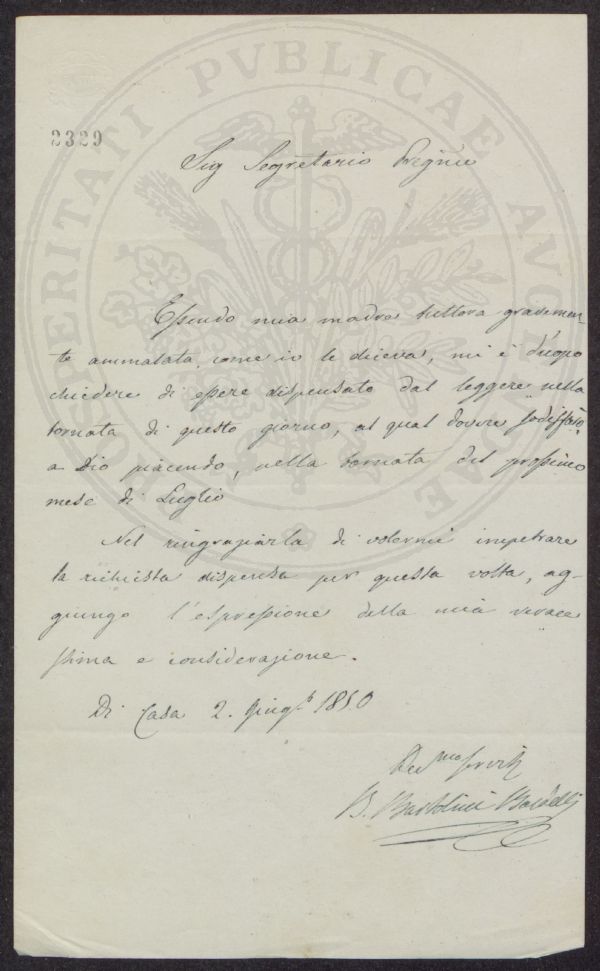 PROSPERITATI PVBLICAE AVGENDAE
2329
Sig Segretario Preg.mo
Essendo mia madre tuttora gravemen-
te ammalata, come io le diceva, mi è d'uopo
chiedere di essere dispensato dal leggere nella
tornata di questo giorno, al qual dovere sodisfarò,
a Dio piacendo, nella tornata del prossimo
mese di Luglio
Nel ringraziarla di volermi impetrare
la richiesta dispensa per questa volta, ag-
giungo l'espressione della mia verace
stima e considerazione.
Di Casa 2. Giug.o 1850
Dev.mo Serv.
B. Bartolini Baldelli